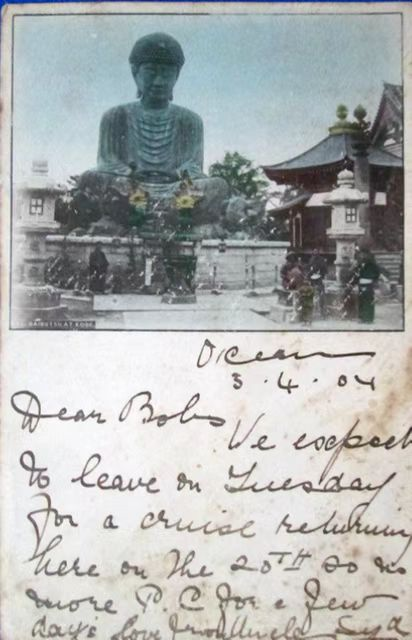 DAIBUTSU AT KOBE
Ocean
3.4.04
Dear Bobs
We expect
to leave on Tuesday
for a cruise returning
here on the 20TH so no
more P.C for a few
day's love from Uncle Syd